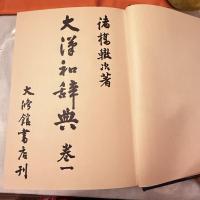 諸橋轍次著
大漢和辞典 卷一
大修館書店刊